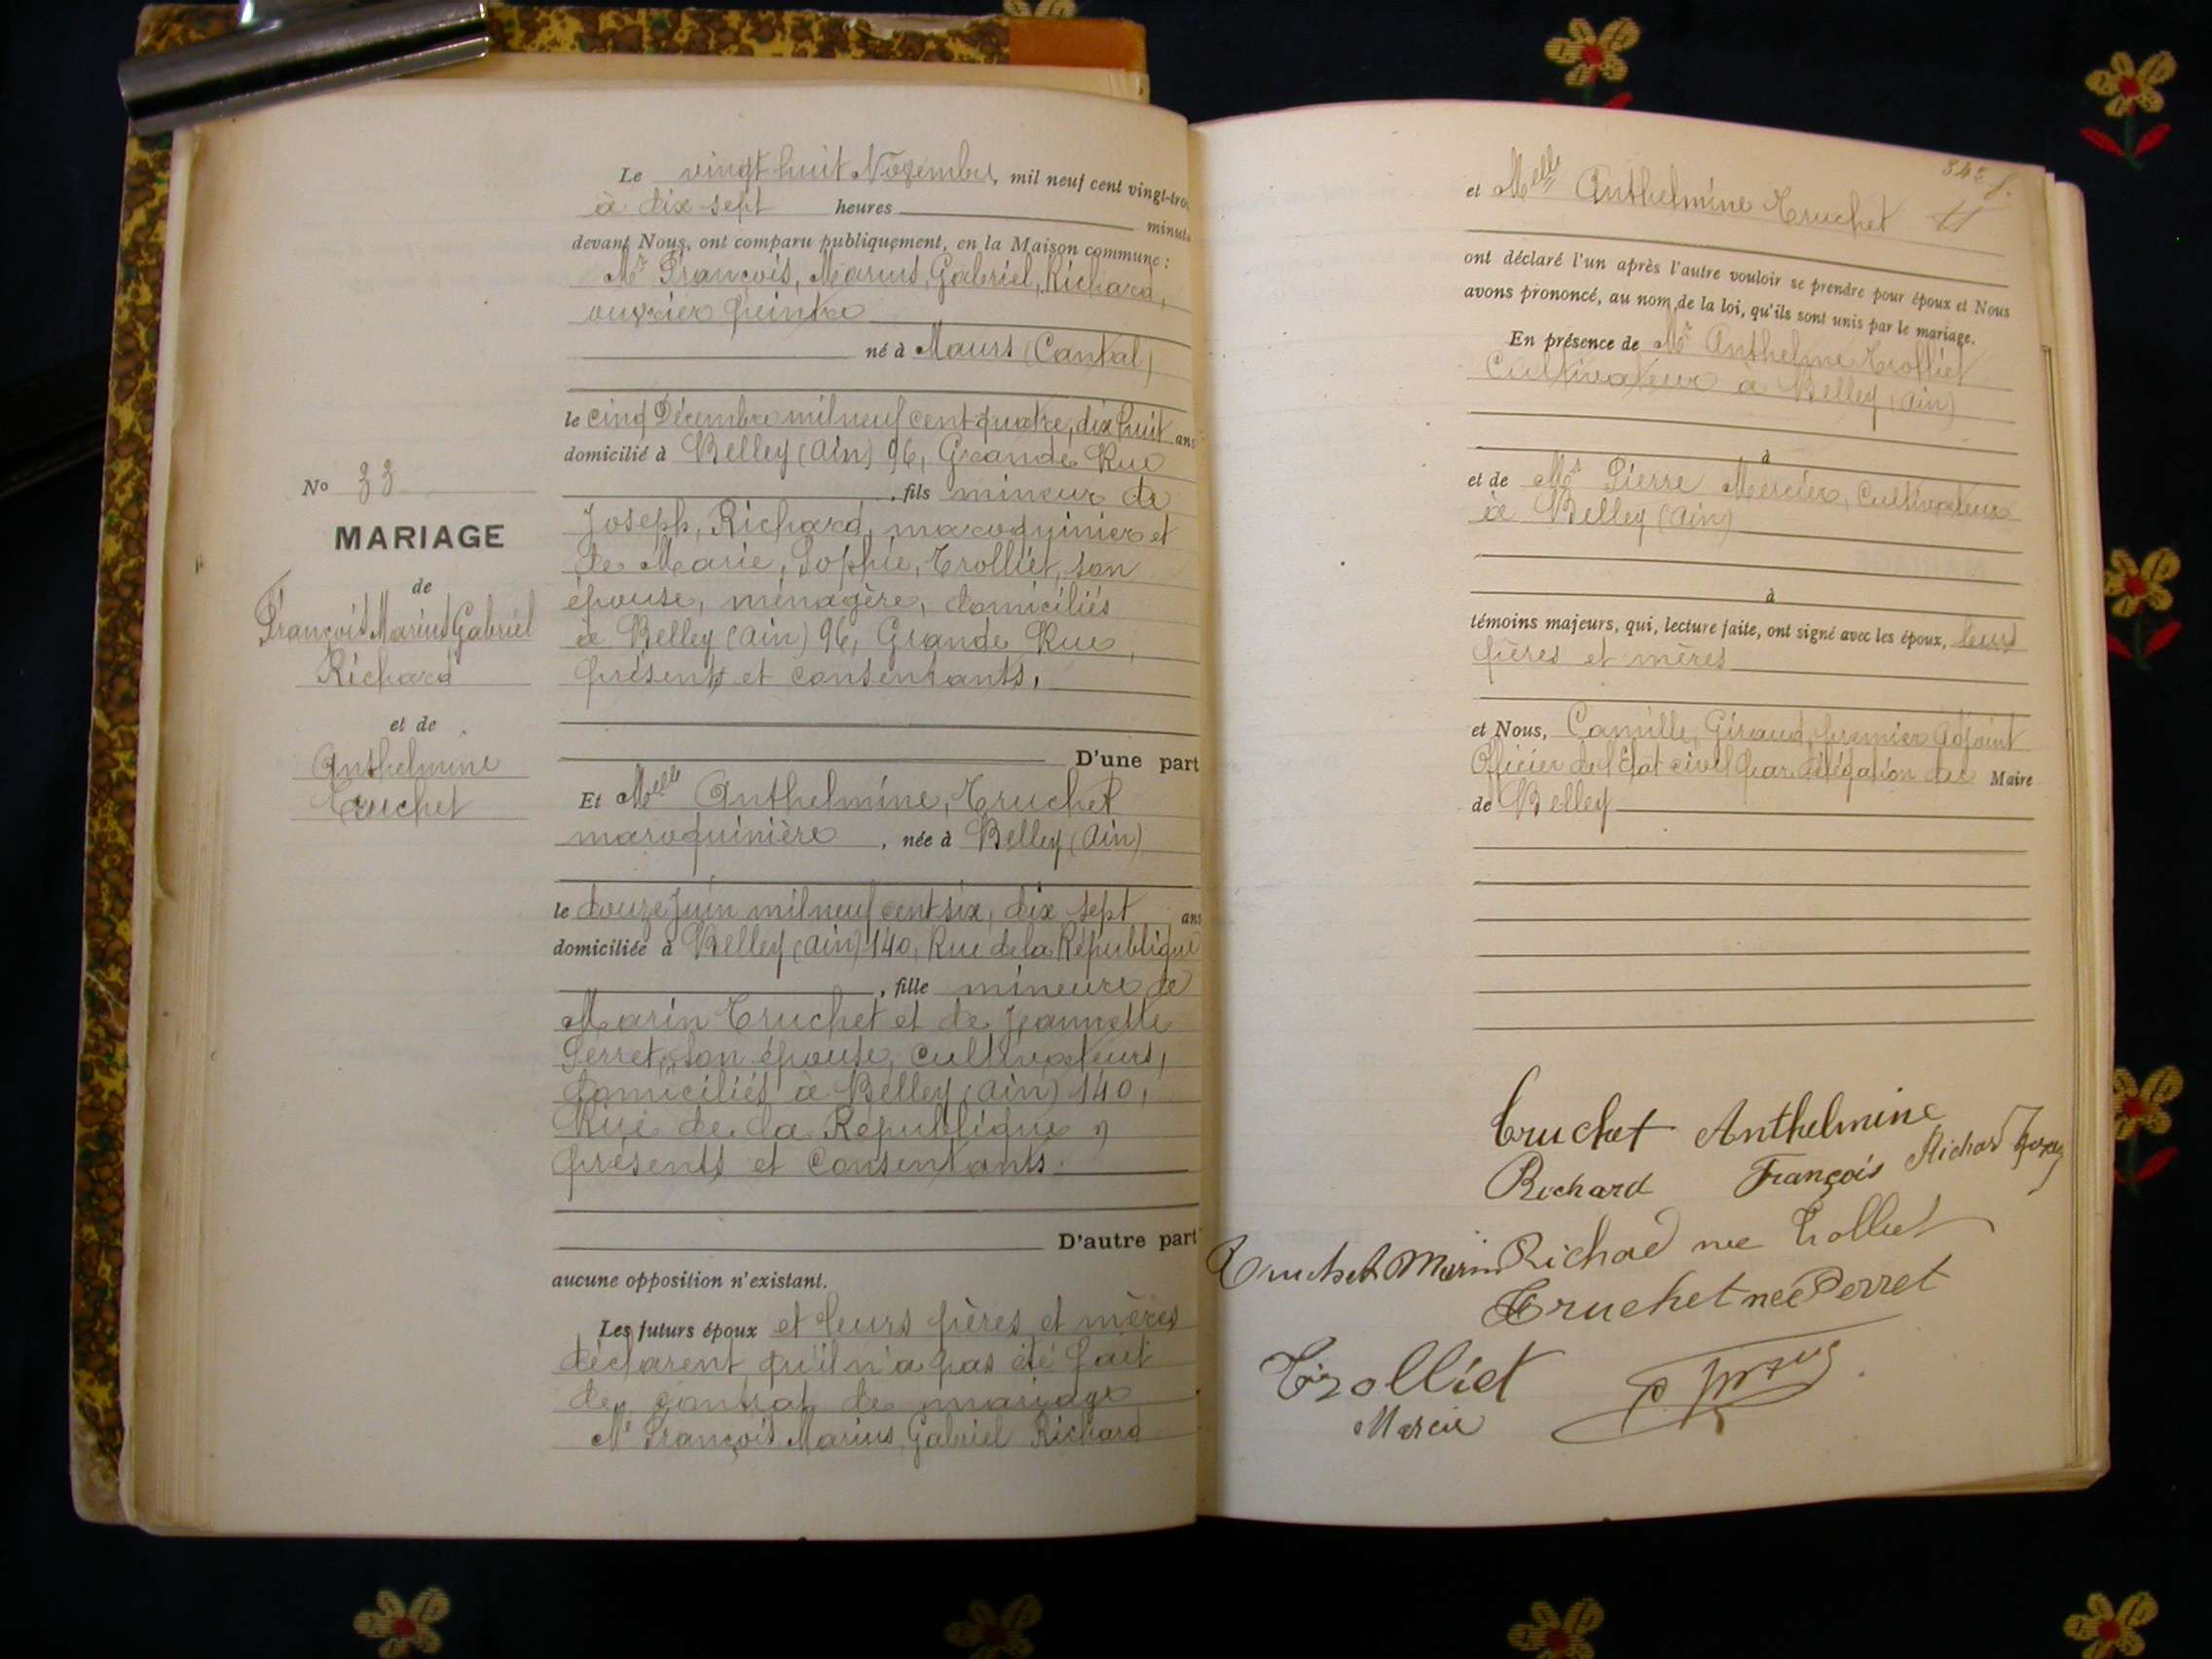 Le vingt huit Novembre, mil neuf cent vingt-troi
à dix sept heures minute
devant Nous, ont comparu publiquement, en la Maison commune :
Mr François, Marius, Gabriel, Richard,
ouvrier peintre
né à Maurs (Cantal)
le cinq Décembre mil neuf cent quatre, dix huit ans
domicilié à Belley (Ain) 96, Grande Rue
, fils mineur de
Joseph, Richard, maroquinier et
de Marie, Sophie, Trolliet, son
épouse, ménagère, domiciliés
à Belley (Ain) 96, Grande Rue,
présents et consentants,
D'une part
Et Melle Anthelmine, Truchet
maroquinière, née à Belley (Ain)
le douze Juin mil neuf cent six, dix sept ans
domiciliée à Belley (Ain) 140, Rue de la République
, fille mineure de
Marin Truchet et de Jeannette
Perret, son épouse, cultivateurs,
domiciliés à Belley (Ain) 140,
Rue de la République,
présents et consentants.
D'autre part
aucune opposition n'existant.
Les futurs époux et leurs pères et mères
déclarent qu'il n'a pas été fait
de contrat de mariage
Mr François Marius, Gabriel Richard
No 33
MARIAGE
de
François Marius Gabriel
Richard
et de
Anthelmine
Truchet
et Melle Anthelmine Truchet
ont déclaré l'un après l'autre vouloir se prendre pour époux et Nous
avons prononcé, au nom de la loi, qu'ils sont unis par le mariage.
En présence de Mr Anthelme Trolliet
Cultivateur à Belley (Ain)
à
et de Mr Pierre Mercier, Cultivateur
à Belley (Ain)
à
témoins majeurs, qui, lecture faite, ont signé avec les époux, leurs
pères et mères
et Nous, Camille, Giraud, premier adjoint
Officier de l'Etat civil par délégation du Maire
de Belley
Truchet Anthelmine
Richard François Richard
Truchet Marin Richard née Trolliet
Truchet née Perret
Trolliet